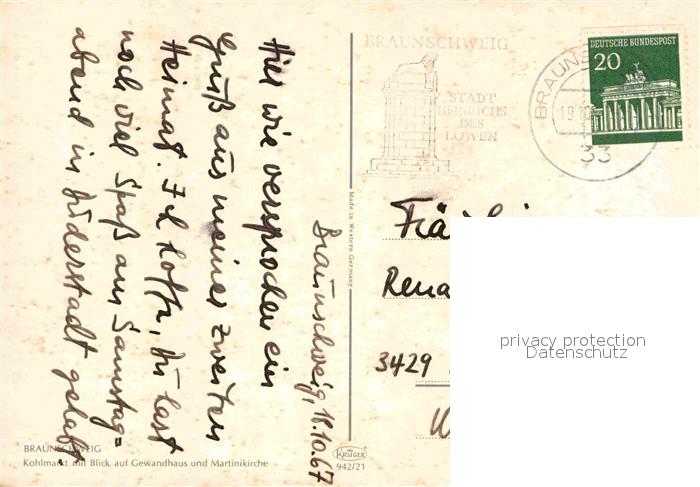 Braunschweig, 18.10.67
Hier wie versprochen ein
Gruß aus meiner zweiten
Heimat. Ich hoffe, Du hast
noch viel Spaß am Samstag=
abend in Duderstadt gehabt.
BRAUNSCHWEIG
STADT
HEINRICHS
DES
LÖWEN
BRAUNS
19.10
33
DEUTSCHE BUNDESPOST
20
Made in Western Germany
Rena
3429
W
privacy protection
Datenschutz
BRAUNSCHWEIG
Kohlmarkt mit Blick auf Gewandhaus und Martinikirche
KRÜGER
942/21